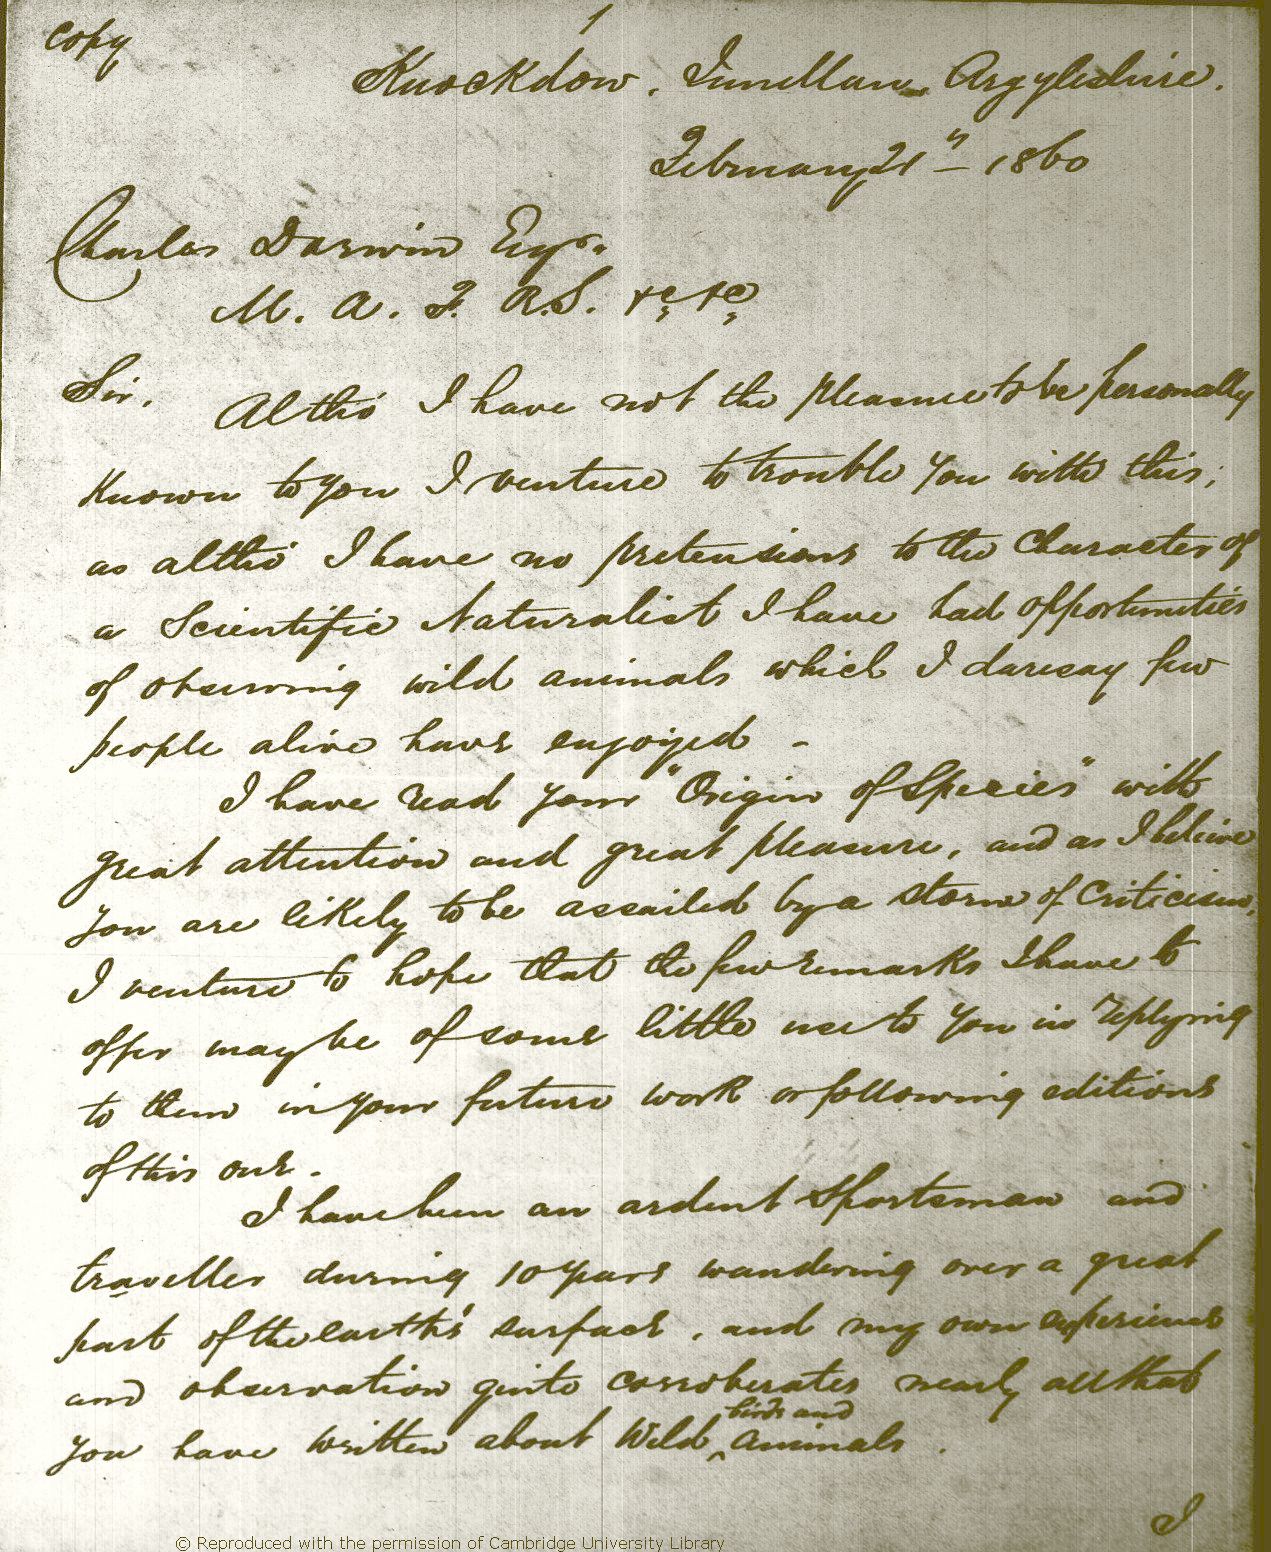 copy
1
Knockdow, Innellan, Argyleshire.
February 21st 1860
Charles Darwin Esqr.
M. A. F. R. S. &c, &c,
Sir,
Altho' I have not the pleasure to be personally
known to you I venture to trouble you with this,
as altho' I have no pretensions to the character of
a Scientific Naturalist I have had opportunities
of observing wild animals which I daresay few
people alive have enjoyed -
I have read your "Origin of Species" with
great attention and great pleasure, and as I believe
you are likely to be assailed by a storm of criticism,
I venture to hope that the few remarks I have to
offer may be of some little use to you in replying
to them in your future work or following editions
of this one.
I have been an ardent Sportsman and
traveller during 10 years wandering over a great
part of the earth's surface, and my own experience
and observation quite corroberates nearly all that
you have written about Wild birds and animals.
I
© Reproduced with the permission of Cambridge University Library